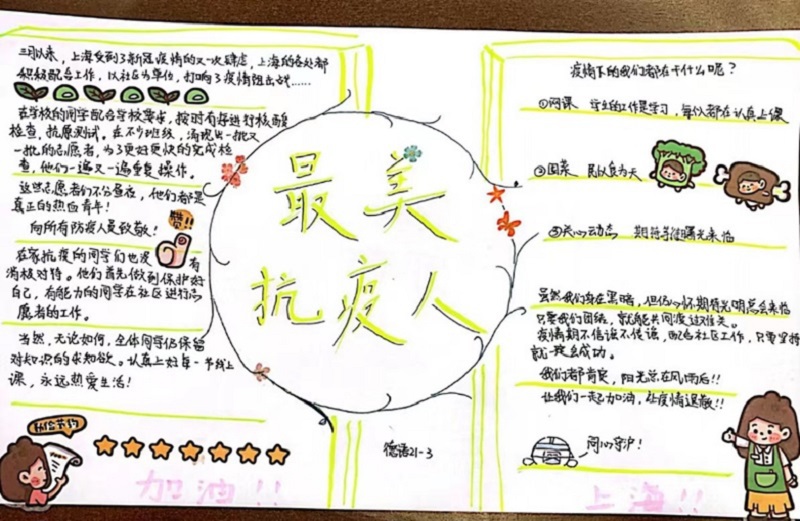 三月以来，上海受到了新冠疫情的又一次肆虐，上海的各处都
积极配合工作，以社区为单位，打响了疫情阻击战……
在学校的同学配合学校要求，按时有序进行核酸
检查，抗原测试。在不少班级，涌现出一批又
一批的志愿者，为了更好更快的完成检
查，他们一遍又一遍重复操作。
这些志愿者们不分昼夜，他们都是
真正的热血青年！
向所有防疫人员致敬！
赞!!
在家抗疫的同学们也没有
消极对待。他们首先做到保护好
自己，有能力的同学在社区进行志
愿者的工作。
当然，无论如何，全体同学仍保留
对知识的求知欲。认真上好每一节线上
课，永远热爱生活！
加油!!
最美
抗疫人
德语21-3
疫情下的我们都在干什么呢？
①网课 学生的工作是学习，每位都在认真上课
②囤菜 民以食为天
③关心动态 期待等住曙光来临
虽然我们身在黑暗，但仍心怀期待光明总会来临
只要我们团结，就能共同渡过难关。
疫情期不信谣不传谣，配合社区工作，只要坚持
就一定会成功。
我们都肯定，阳光总在风雨后!!
让我们一起加油，让疫情退散!!
同心守沪！
上海!!